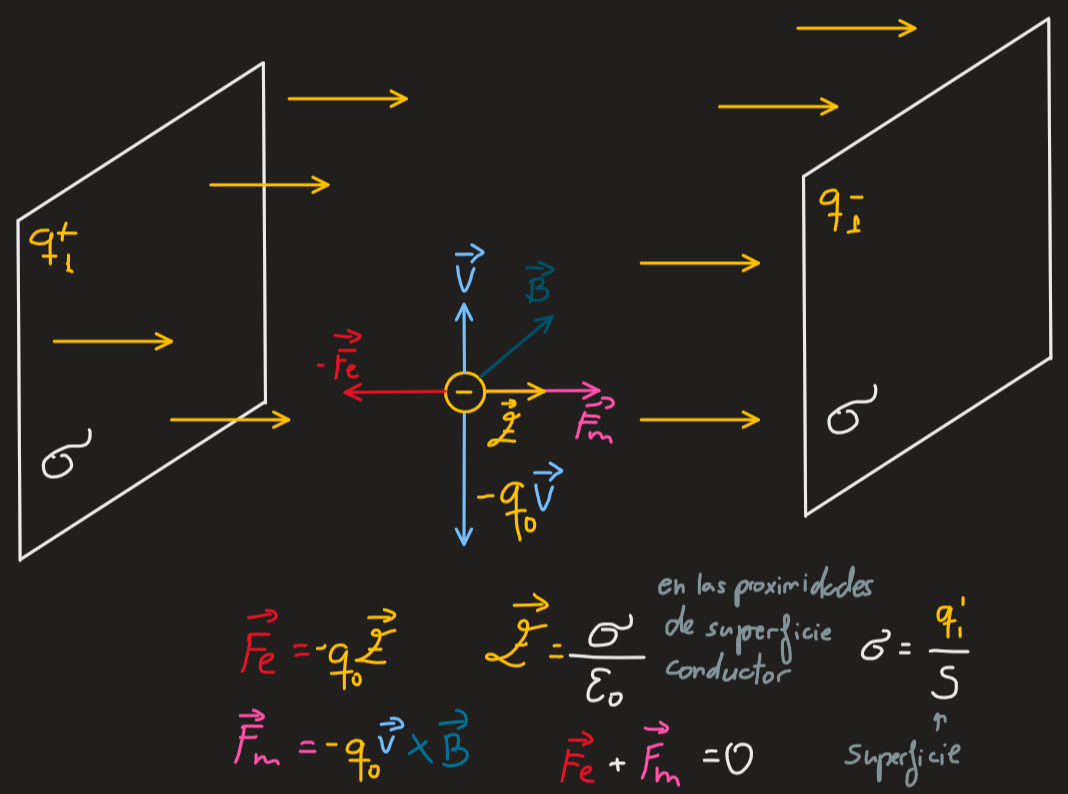 q₁⁺
σ
q₁⁻
σ
V⃗
B⃗
-F⃗e
−
E⃗
F⃗m
-q₀V⃗
F⃗e = -q₀E⃗
E⃗ = σ/ε₀
en las proximidades
de superficie
conductor
σ = q₁'/S
↑
superficie
F⃗m = -q₀v⃗ × B⃗
F⃗e + F⃗m = 0